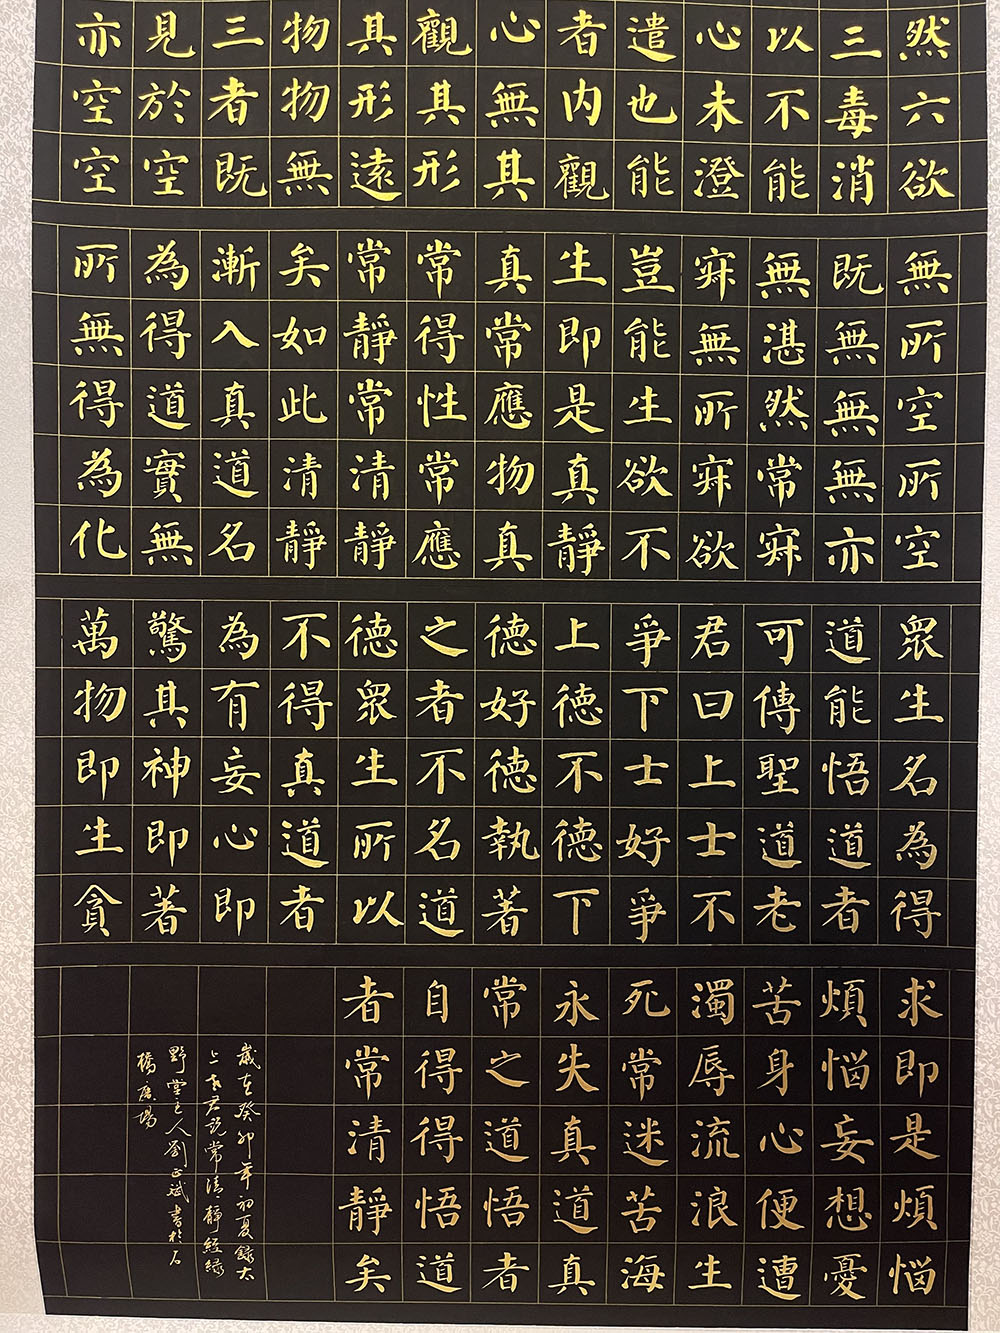 然六欲
三毒消
以不能
心未澄
遣也能
者内觀
心無其
觀其形
其形遠
物物無
三者既
見於空
亦空空
無所空所空
既無無無亦
無湛然常寂
寂無所寂欲
豈能生欲不
生即是真靜
真常應物真
常得性常應
常靜常清靜
矣如此清靜
漸入真道名
為得道實無
所無得為化
眾生名為得
道能悟道者
可傳聖道老
君曰上士不
爭下士好爭
上德不德下
德好德執著
之者不名道
德眾生所以
不得真道者
為有妄心即
驚其神即著
萬物即生貪
求即是煩惱
煩惱妄想憂
苦身心便遭
濁辱流浪生
死常迷苦海
永失真道真
常之道悟者
自得得悟道
者常清靜矣
歲在癸卯年初夏錄太
上老君説常清靜經緑
野堂主人劉正斌書於石
橋廣場